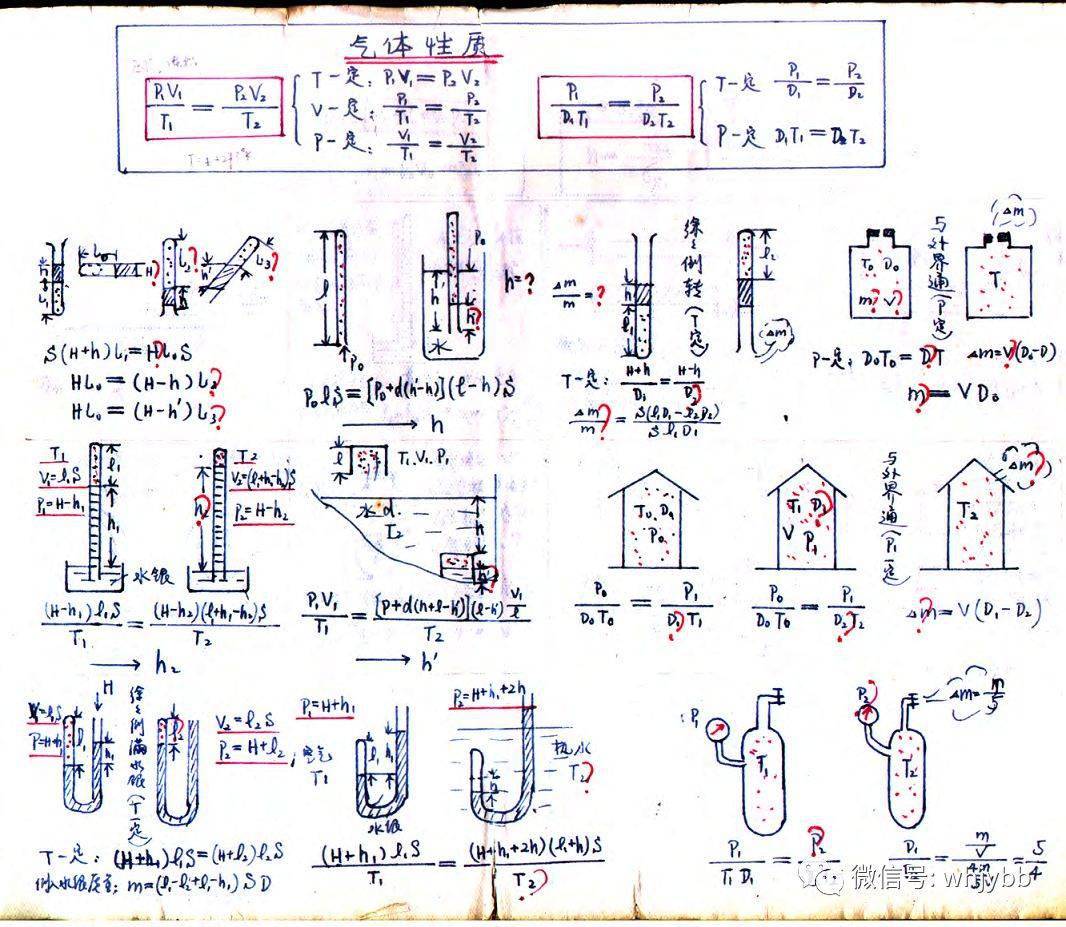 气体性质
P₁V₁/T₁ = P₂V₂/T₂
T一定: P₁V₁ = P₂V₂
V一定: P₁/T₁ = P₂/T₂
P一定: V₁/T₁ = V₂/T₂
P₁/D₁T₁ = P₂/D₂T₂
T一定 P₁/D₁ = P₂/D₂
P一定 D₁T₁ = D₂T₂
h L₁ L₀ H? L₂? h h' L₃?
S(H+h)L₁ = HL₀S
HL₀ = (H-h)L₂?
HL₀ = (H-h')L₃?
l P₀ P₀ h 水 h'? h=?
P₀lS = [P₀+d(h'-h)](l-h)S
→ h
Δm/m = ? h l₁ 徐徐倒转(T一定) l₂ Δm
T一定: H+h/D₁ = H-h/D₂?
Δm/m? = S(l₁D₁-l₂D₂)/Sl₁D₁
T₀ D₀ m? V? 与外界通(P一定) T Δm
P一定: D₀T₀ = DT Δm=V(D₀-D)
m? = VD₀
T₁
V₁=l₁S
P₁=H-h₁
l₁ h₁ 水银 h₂?
T₂
V₂=(l₁+h₁-h₂)S
P₂=H-h₂
(H-h₁)l₁S/T₁ = (H-h₂)(l₁+h₁-h₂)S/T₂
→ h₂
l T₁.V₁.P₁
水 d. T₂ h h'?
P₁V₁/T₁ = [P+d(h+l-h')](l-h')V₁/l/T₂
→ h'
T₀ D₀ P₀
T₁ D₁? V P₁
与外界通(P₁一定)
T₂ Δm?
P₀/D₀T₀ = P₁/D₁?T₁
P₀/D₀T₀ = P₁/D₂?T₂
Δm? = V(D₁-D₂)
V=l₁S
P=H+h₁
l₁ h₁ H 徐徐倒满水银(T一定) l₂
V₂=l₂S
P₂=H+l₂
T一定: (H+h₁)l₁S=(H+l₂)l₂S
m=(l₁-l₂+l₁-h₁)SD
P₁=H+h₁
空气 T₁ l₁ h₁ 水银
P₂=H+h₁+2h
h 热水 T₂?
(H+h₁)l₁S/T₁ = (H+h₁+2h)(l₁+h)S/T₂?
P₁ T₁
P₂? T₂ Δm=m/5
P₁/T₁D₁ = P₂?
D₁/D₂ = m/V = 5/4
微信号: whjybb